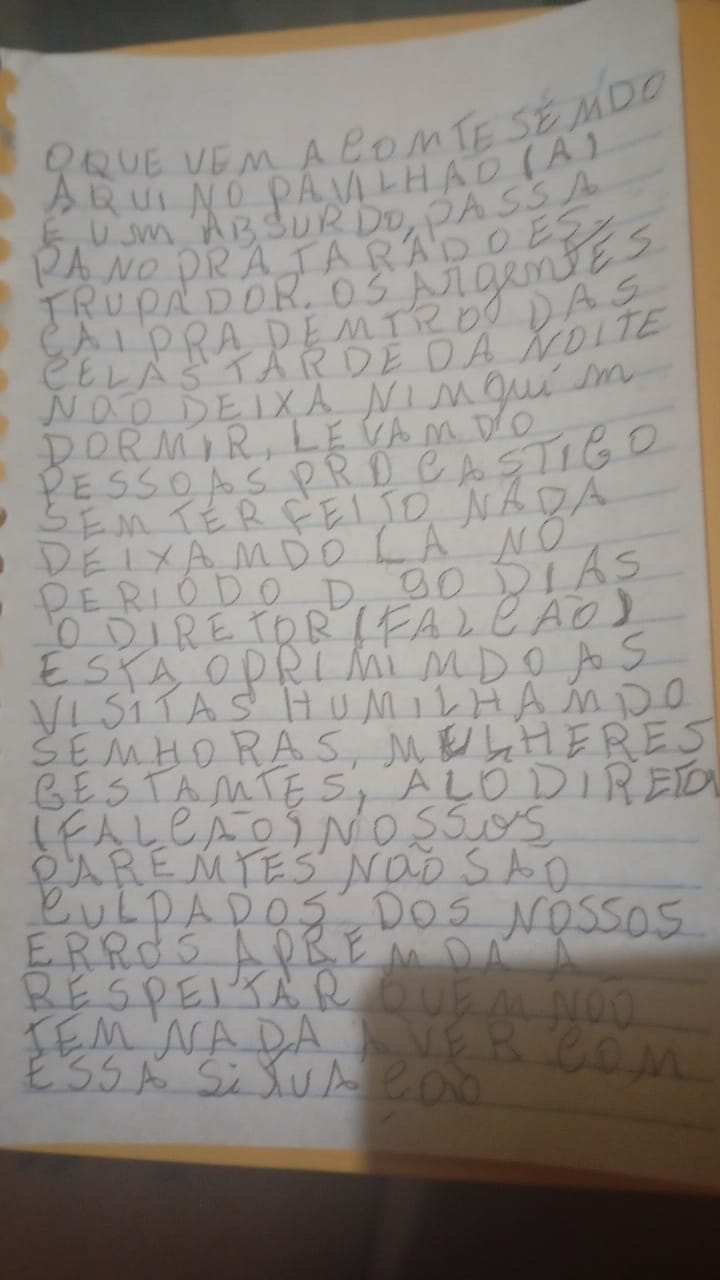 OQUE VEM A COMTESEMDO
AQUI NO PAVILHAO (A)
E USM ABSURDO, PASSA
PANO PRA TARADO ES-
TRUPADOR. OS Argentes
CAI PRA DEMTRO DAS
CELAS TARDE DA NOITE
NÃO DEIXA NIMQUIM
DORMIR, LEVAMDO
PESSOAS PRO CASTIGO
SEM TER FEITO NADA
DEIXAMDO LA NO
PERIODO D 90 DIAS
O DIRETOR (FALCÃO)
ESTA OPRIMIMDO AS
VISITAS HUMILHAMDO
SEMHORAS, MULHERES
GESTAMTES, ALO DIRETOR
(FALCÃO) NOSSOS
PAREMTES NÃO SAO
CULPADOS DOS NOSSOS
ERROS APREMDA A
RESPEITAR QUEM NÃO
TEM NADA A VER COM
ESSA SiTUACÃO